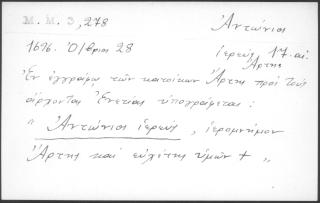 M. M. 3, 278
Ἀντώνιος
1696. Ὀ/βριος 28
ἱερεύς 17. αἰ.
Ἄρτης
Ἐν ἐγγράφῳ τῶν κατοίκων Ἄρτης πρὸς τοὺς
ἄρχοντας Ἑνετίας ὑπογράφεται:
"Ἀντώνιος ἱερεύς, ἱερομνήμον
Ἄρτης καὶ εὐχέτης ὑμῶν + "